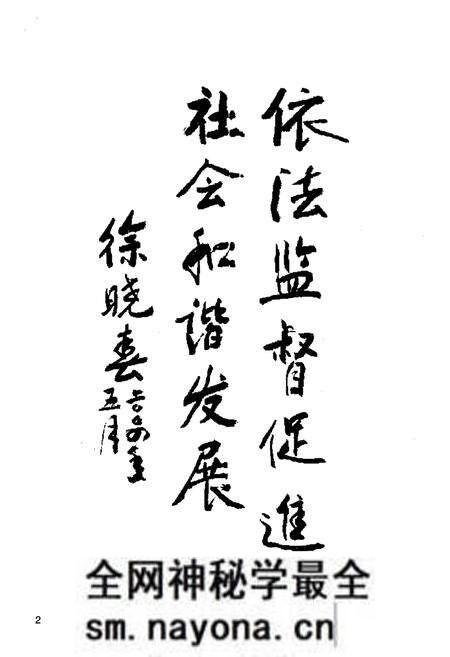 依法监督促進
社会和谐发展
徐晓春
五月
全网神秘学最全
sm.nayona.cn
2